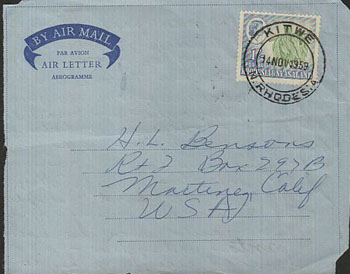 BY AIR MAIL
PAR AVION
AIR LETTER
AEROGRAMME
KITWE
14 NOV 1959
N. RHODESIA
H. L. Bensons
Rt 2 Box 297B
Martinez Calif
USA